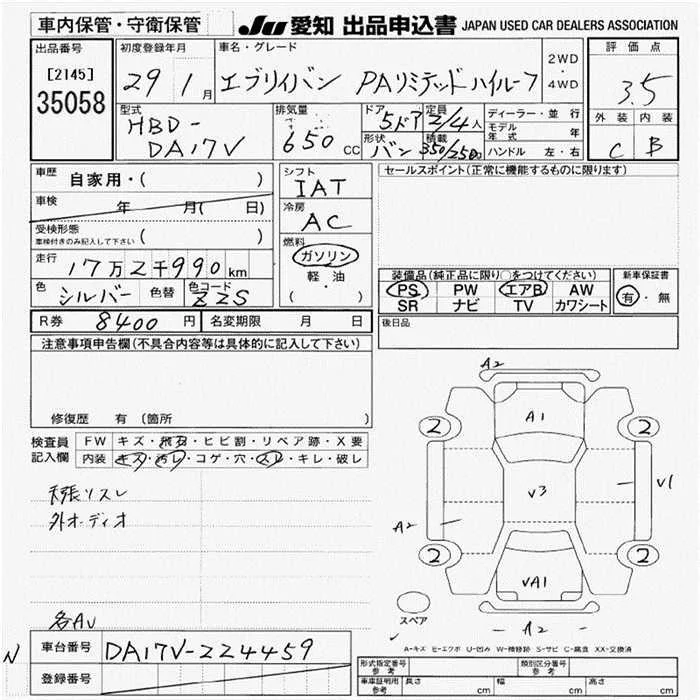 車内保管・守衛保管 JU 愛知 出品申込書 JAPAN USED CAR DEALERS ASSOCIATION
出品番号 初度登録年月 車名・グレード 評価点
[2145] 29 1月 エブリイバン PAリミテッドハイルーフ 2WD・4WD 3.5
35058 型式 排気量 ドア 5ドア 定員 2/4人 ディーラー・並行 外装 内装
HBD-DA17V 650cc 形状 バン 積載 350/250kg モデル年式 年 C B
ハンドル 左・右
車歴 自家用・( ) シフト IAT セールスポイント(正常に機能するものに限ります)
車検 年 月( 日) 冷房 AC
受検形態 ( )
車検付きのみ記入して下さい 燃料
走行 17万2千990km ガソリン 装備品(純正品に限り○をつけてください) 新車保証書
色 シルバー 色替 色コード ZZS 軽・油 PS PW エアB AW 有・無
( ・ ) SR ナビ TV カワシート
R券 8400円 名変期限 月 日 後日品
注意事項申告欄(不具合内容等は具体的に記入して下さい)
修復歴 有 (箇所 )
検査員 FW キズ・飛石・ヒビ割・リペア跡・X要
記入欄 内装 キズ・汚レ・コゲ・穴・スレ・キレ・破レ
A2
A1
2 2
V3 V1
A2
2 2
VA1
天張リスレ
外オーディオ
スペア
A2
各AU
A-キズ E-エクボ U-凹み W-補修跡 S-サビ C-腐食 XX-交換済
N 車台番号 DA17V-224459
登録番号
形式指定番号 参考 類別区分番号 参考
車庫証明用 参考 長さ cm 幅 cm 高さ cm